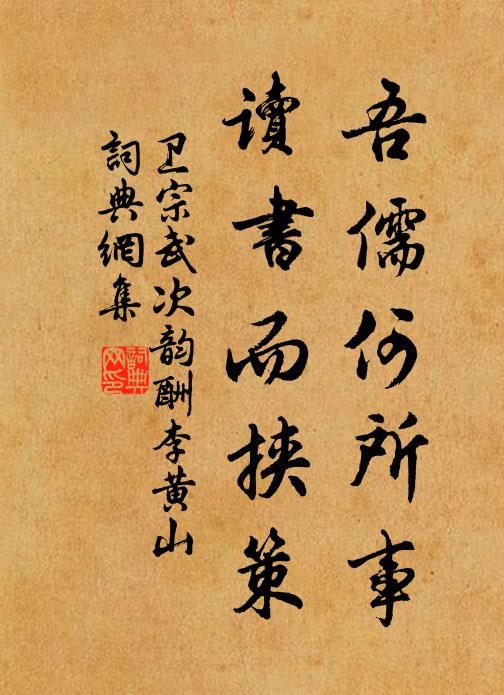 吾儒何所事
讀書而挾策
卫宗武次韵酬李黄山
詞典網集
詞典网印